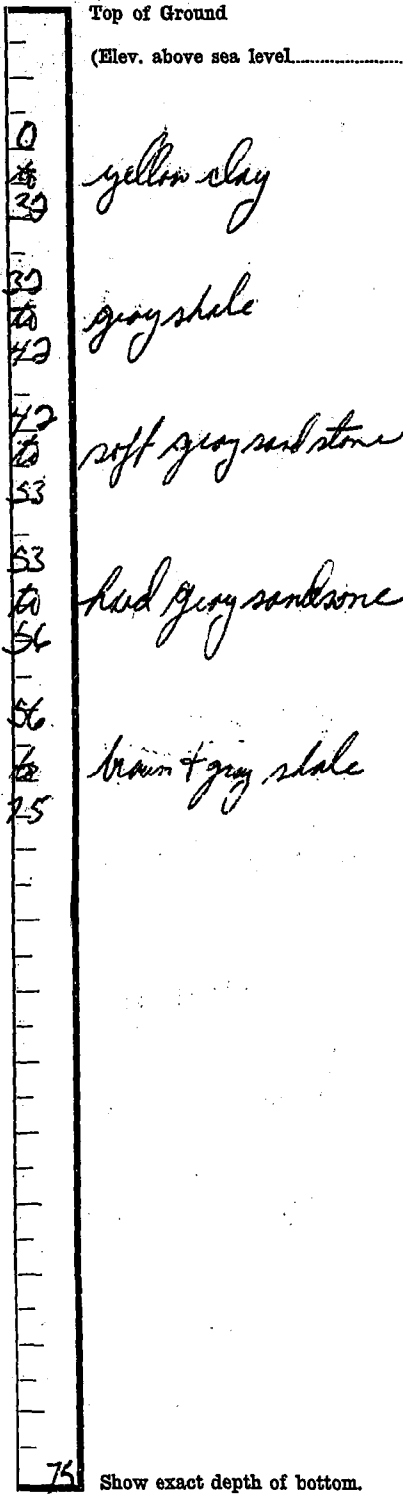 Top of Ground
(Elev. above sea level....................
0
to yellow clay
32
32
to gray shale
42
42
to soft gray sand stone
53
53
to hard gray sandsone
56
56
to brown + gray shale
75
75 Show exact depth of bottom.